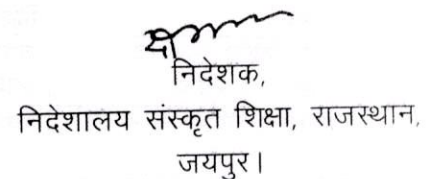 निदेशक,
निदेशालय संस्कृत शिक्षा, राजस्थान,
जयपुर।